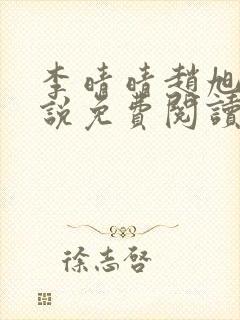 李晴晴趙旭
說免費閱讀
徐志啓